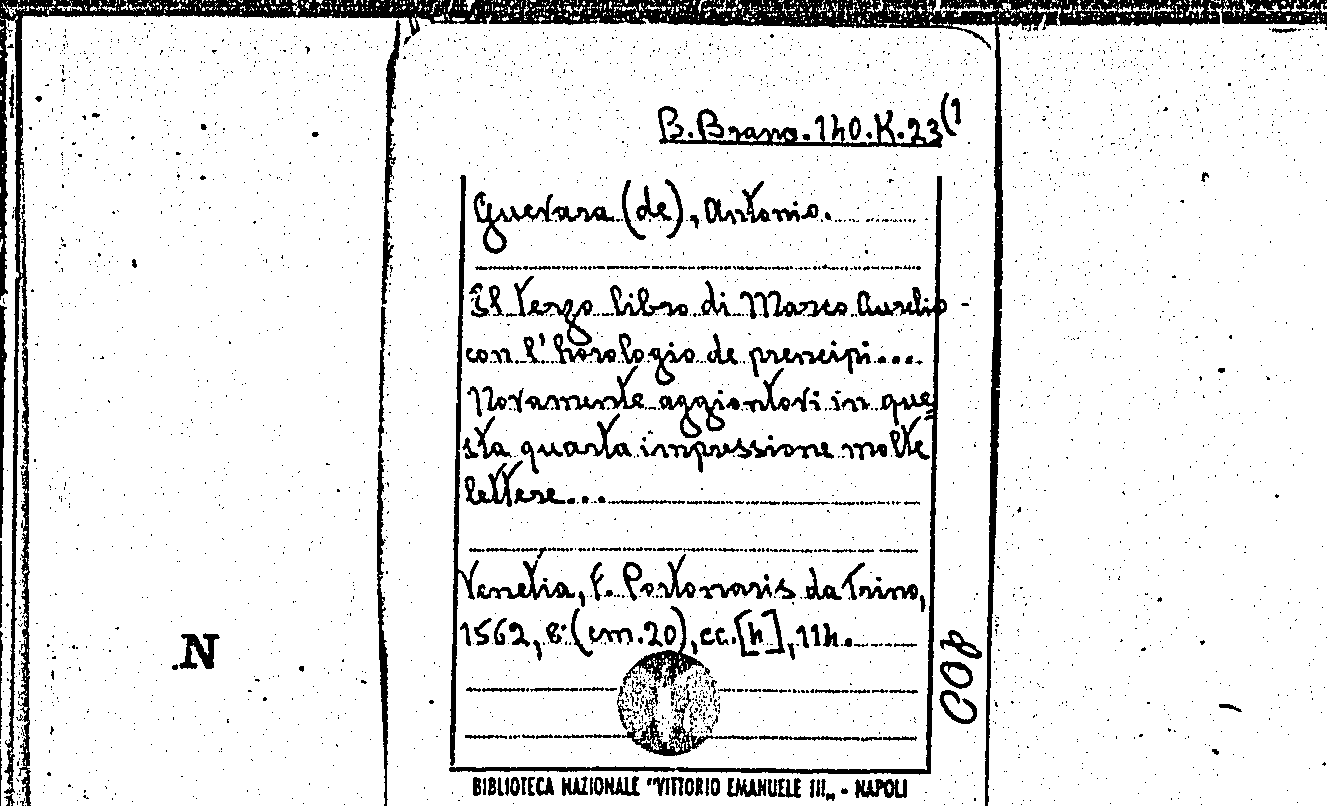 B. Branc. 140. K. 23(1
Guevara (de), Antonio.
Il terzo libro di Marco Aurelio
con l'horologio de prencipi...
Novamente aggiontovi in que
sta quarta impressione molte
lettere...
Venetia, F. Portonaris da Trino,
1562, 8° (cm. 20), cc. [4], 114.
800
N
BIBLIOTECA NAZIONALE "VITTORIO EMANUELE III" - NAPOLI